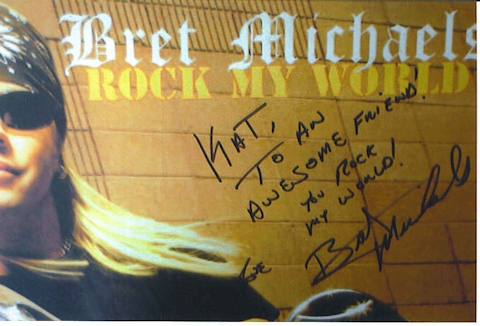 Bret Michaels
ROCK MY WORLD
KAT,
TO AN
AWESOME FRIEND!
YOU ROCK
MY WORLD!
Bret Michaels